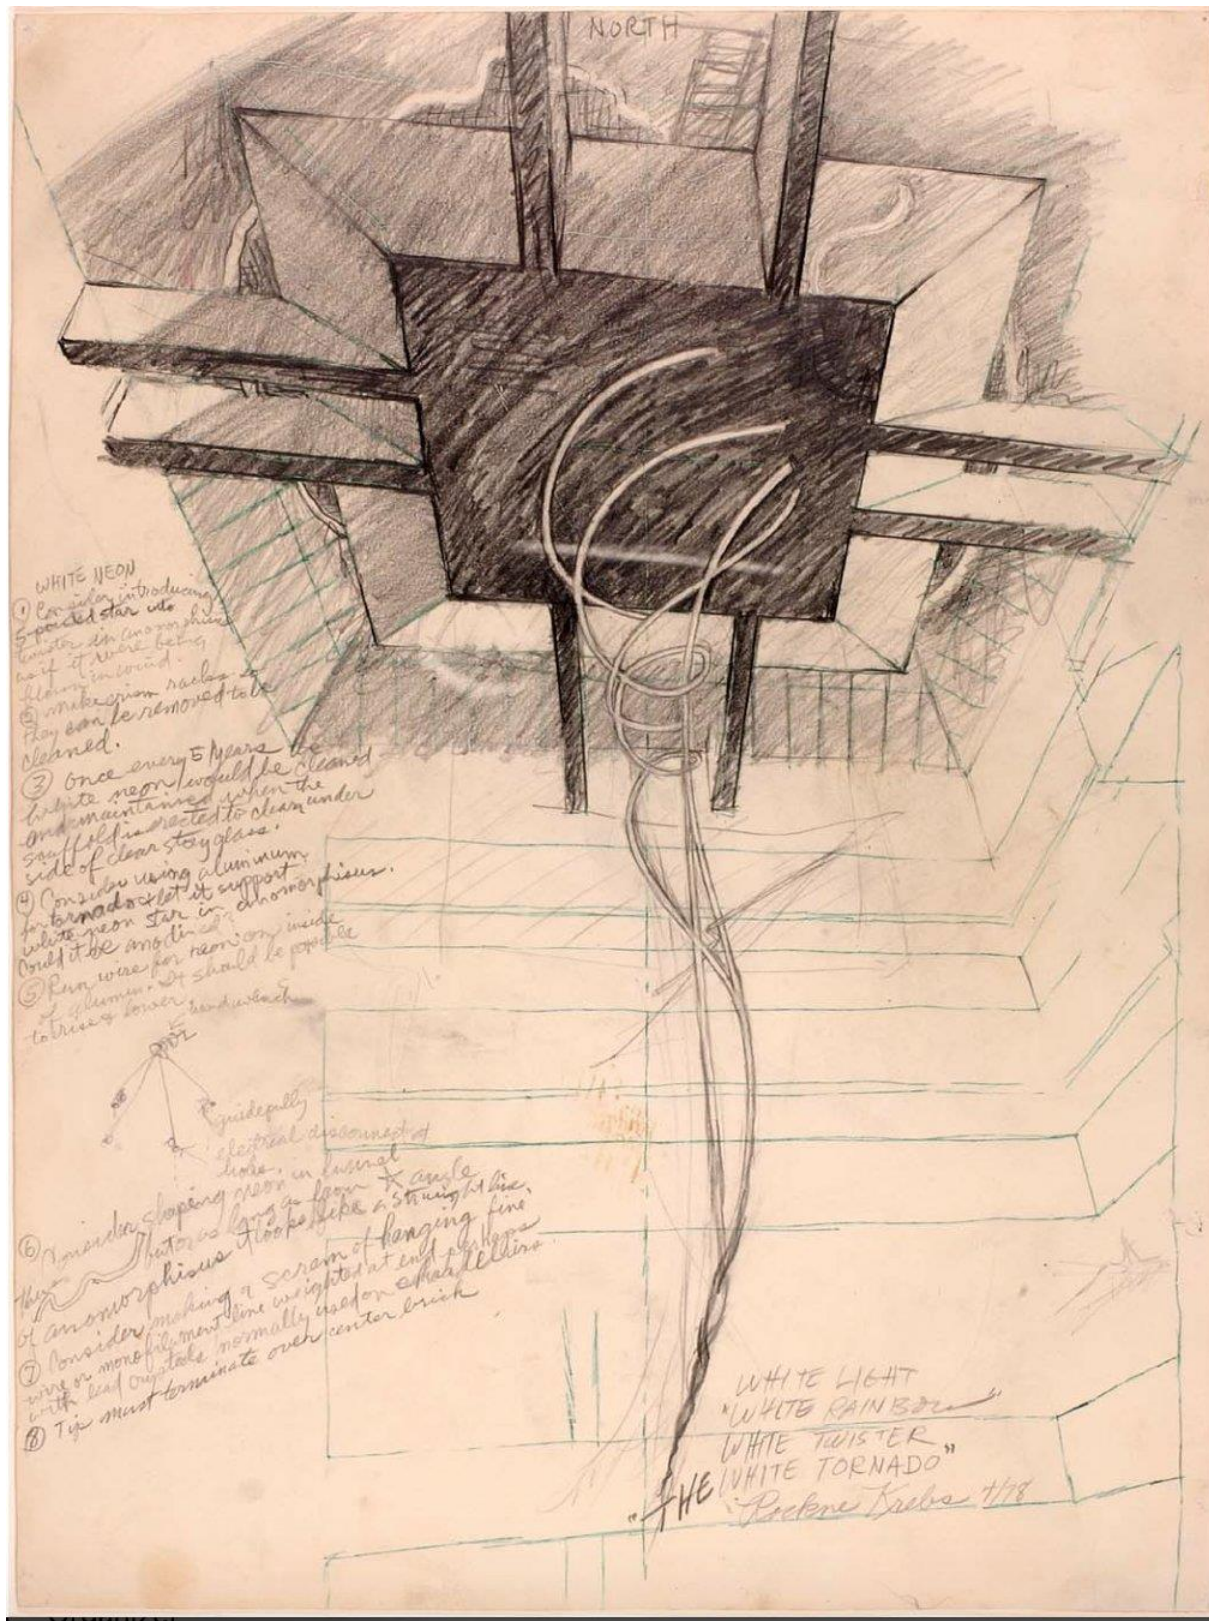 NORTH
WHITE NEON
① Consider introducing
5-pointed star into
twister in anamorphisus
as if it were being
blown in wind.
② make prism racks so
they can be removed to be
cleaned.
③ Once every 5 years the
white neon would be cleaned
and maintained when the
scaffold is erected to clean under
side of clear story glass.
④ Consider using aluminum
for tornado & let it support
white neon star in anomorphisus.
Could it be anodized?
⑤ Run wire for neon on inside
of alumin. It should be possible
to raise & lower
hand wench
guidepully
electrical disconnect at
hole.
⑥ Consider shaping neon in funnel
thus but as long as from angle
of anomorphisus it looks like a straight line.
⑦ Consider making a scream of hanging fine
wire or monofilament line weighted at end perhaps
with lead crystals normally used on chandeliers.
⑧ Tip must terminate over center brick
WHITE LIGHT
"WHITE RAINBOW"
WHITE TWISTER
"THE WHITE TORNADO"
Rockne Krebs 4/78